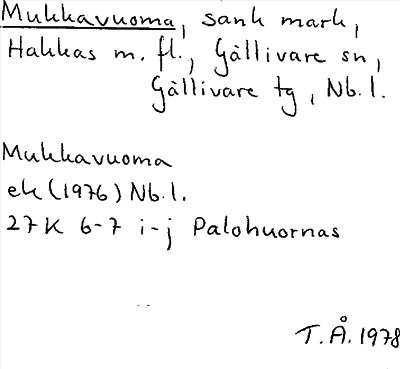 Mukkavuoma, sank mark,
Hakkas m. fl., Gällivare sn,
Gällivare tg, Nb. l.
Mukkavuoma
ek (1976) Nb. l.
27K 6-7 i-j Palohuornas
T. Å. 1978